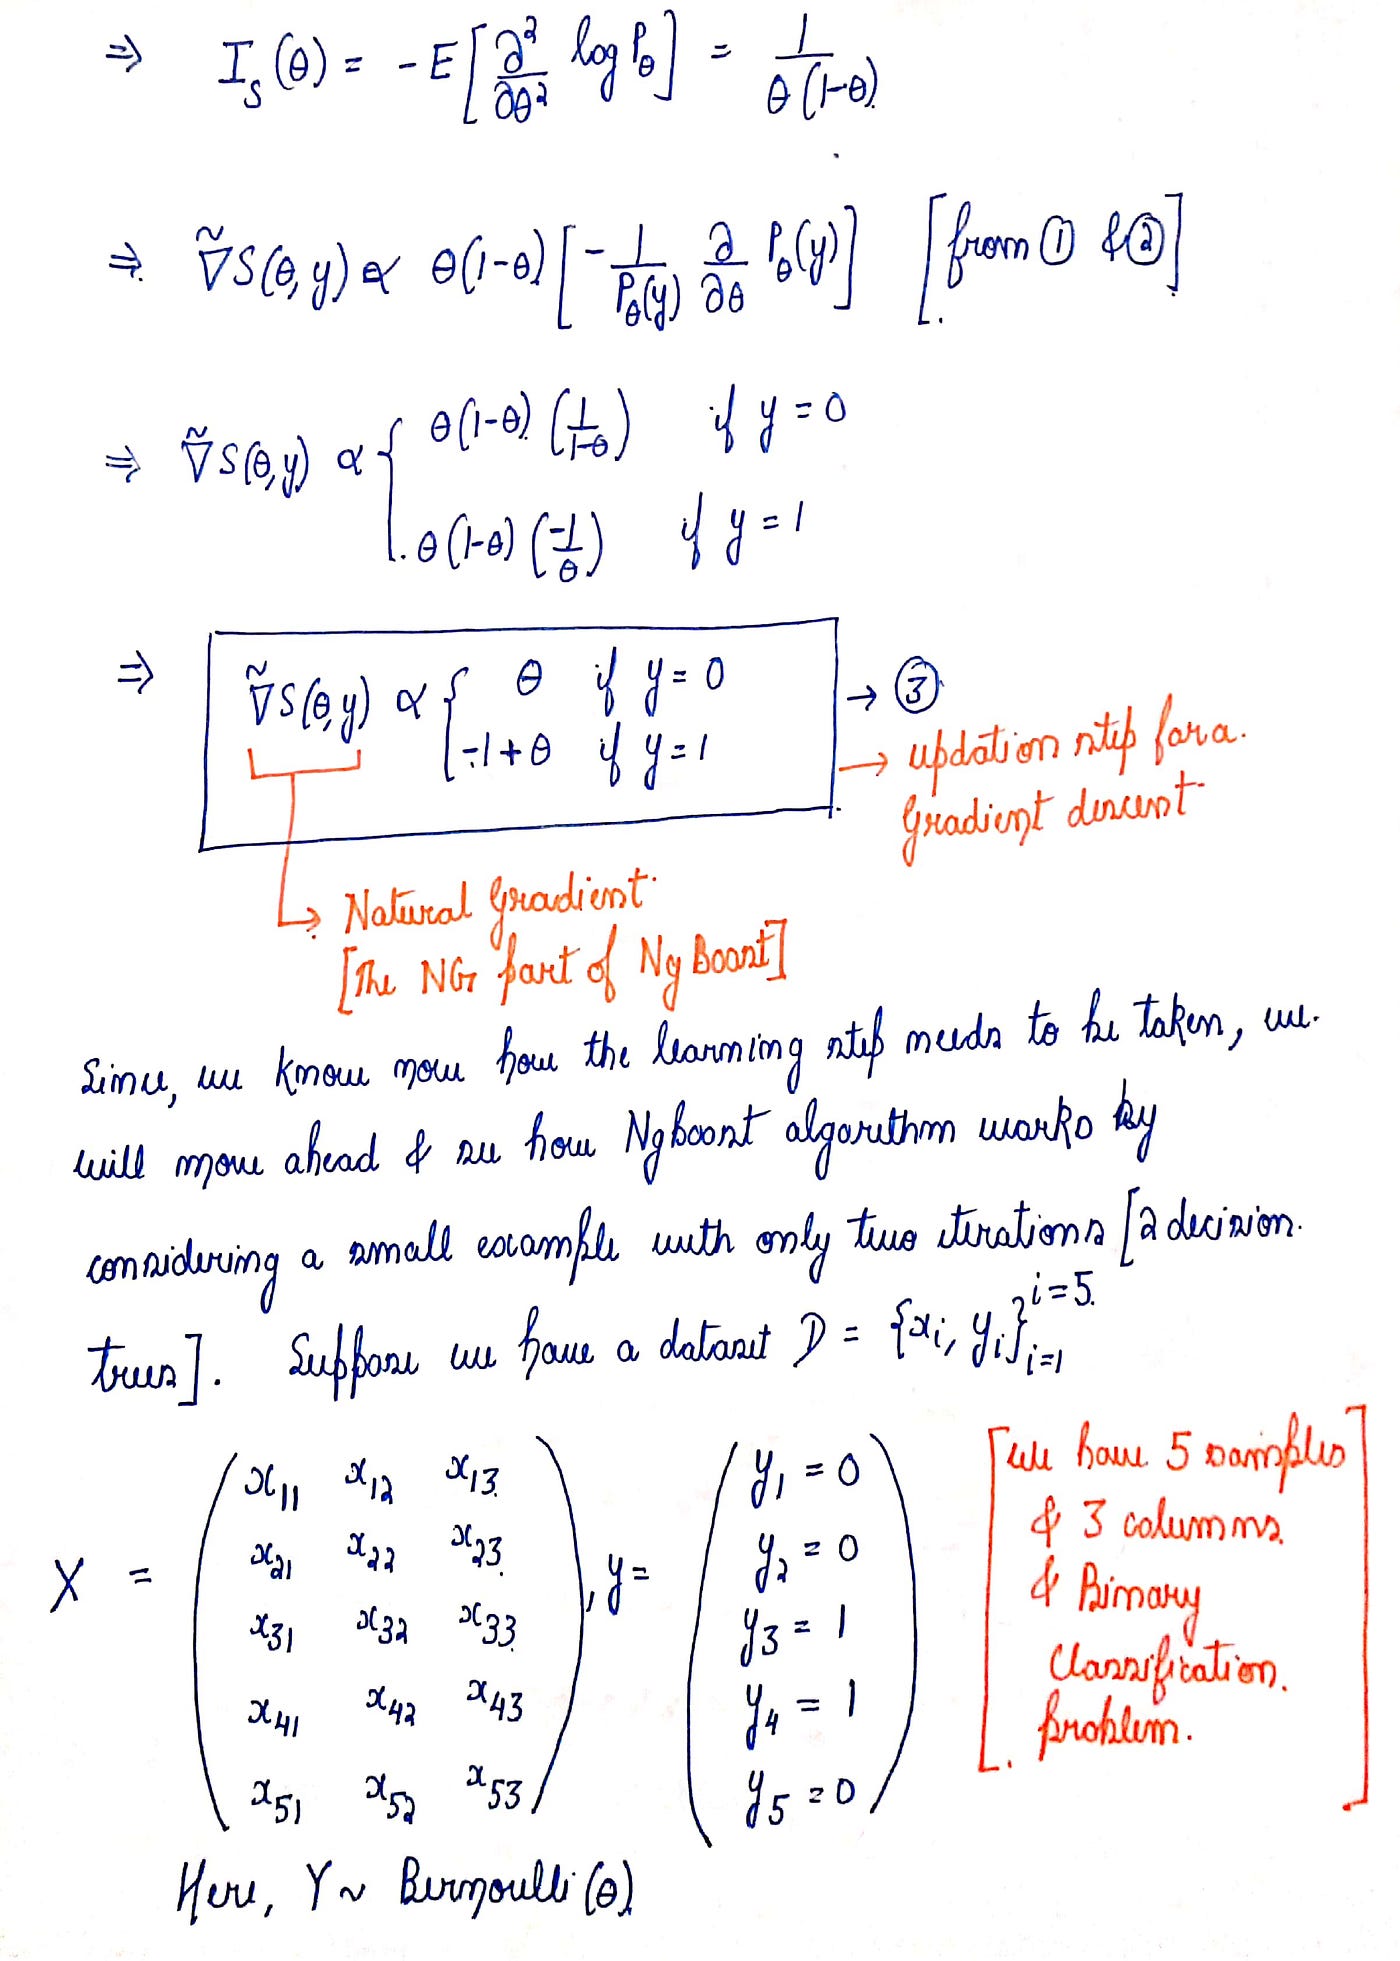 ⇒ I_S(θ) = -E[∂²/∂θ² log P_θ] = 1/θ(1-θ)
⇒ ∇̃S(θ,y) ∝ θ(1-θ)[-1/P_θ(y) ∂/∂θ P_θ(y)] [from ① & ②]
⇒ ∇̃S(θ,y) ∝ { θ(1-θ)(1/1-θ) if y = 0
θ(1-θ)(-1/θ) if y = 1
⇒ ∇̃S(θ,y) ∝ { θ if y = 0
-1+θ if y = 1
→ ③
→ updation step for a
Gradient descent
↳ Natural Gradient
[The NG part of NgBoost]
Since, we know now how the learning step needs to be taken, we
will move ahead & see how Ngboost algorithm works by
considering a small example with only two iterations [2 decision
trees]. Suppose we have a dataset D = {x_i, y_i}_{i=1}^{i=5}
X = ( x_11 x_12 x_13
x_21 x_22 x_23
x_31 x_32 x_33
x_41 x_42 x_43
x_51 x_52 x_53 )
, y = ( y_1 = 0
y_2 = 0
y_3 = 1
y_4 = 1
y_5 = 0 )
[We have 5 samples
& 3 columns
& Binary
Classification
problem.]
Here, Y ~ Bernoulli(θ)